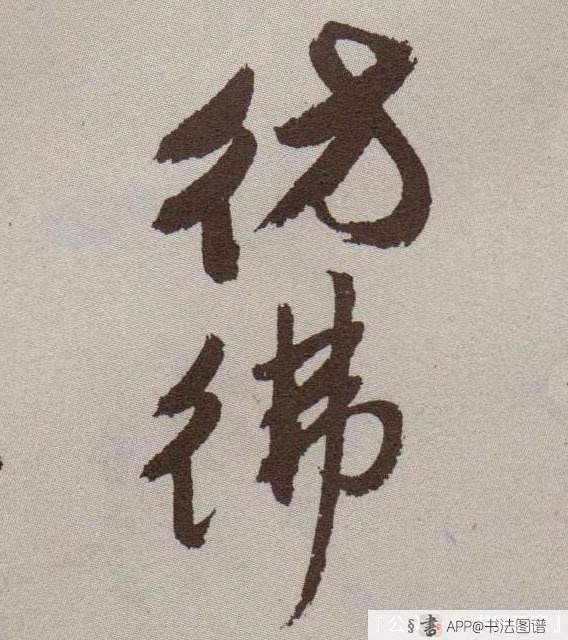 彷彿
「公
§書 APP@书法图谱